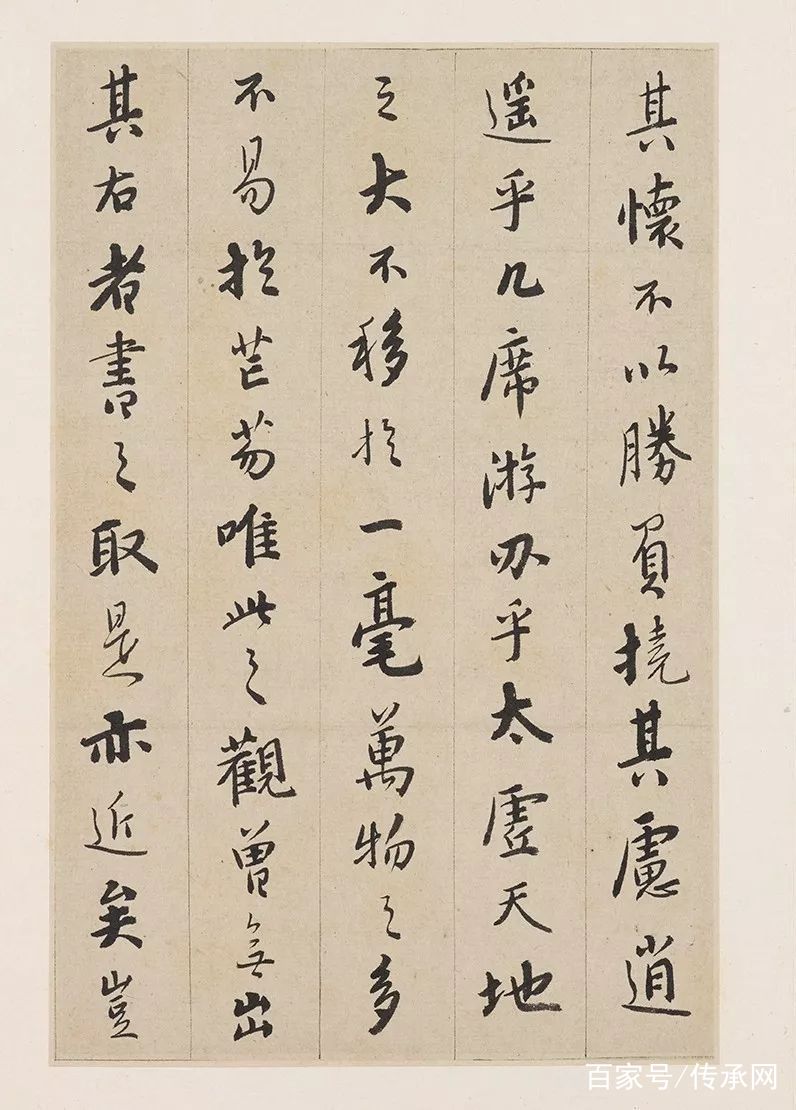 其懷不以勝負撓其慮逍
遥乎几席游刃乎太虛天地
之大不移於一毫萬物之多
不易於芒芴唯此之觀曾無出
其右者書之取是亦近矣豈
百家号/传承网